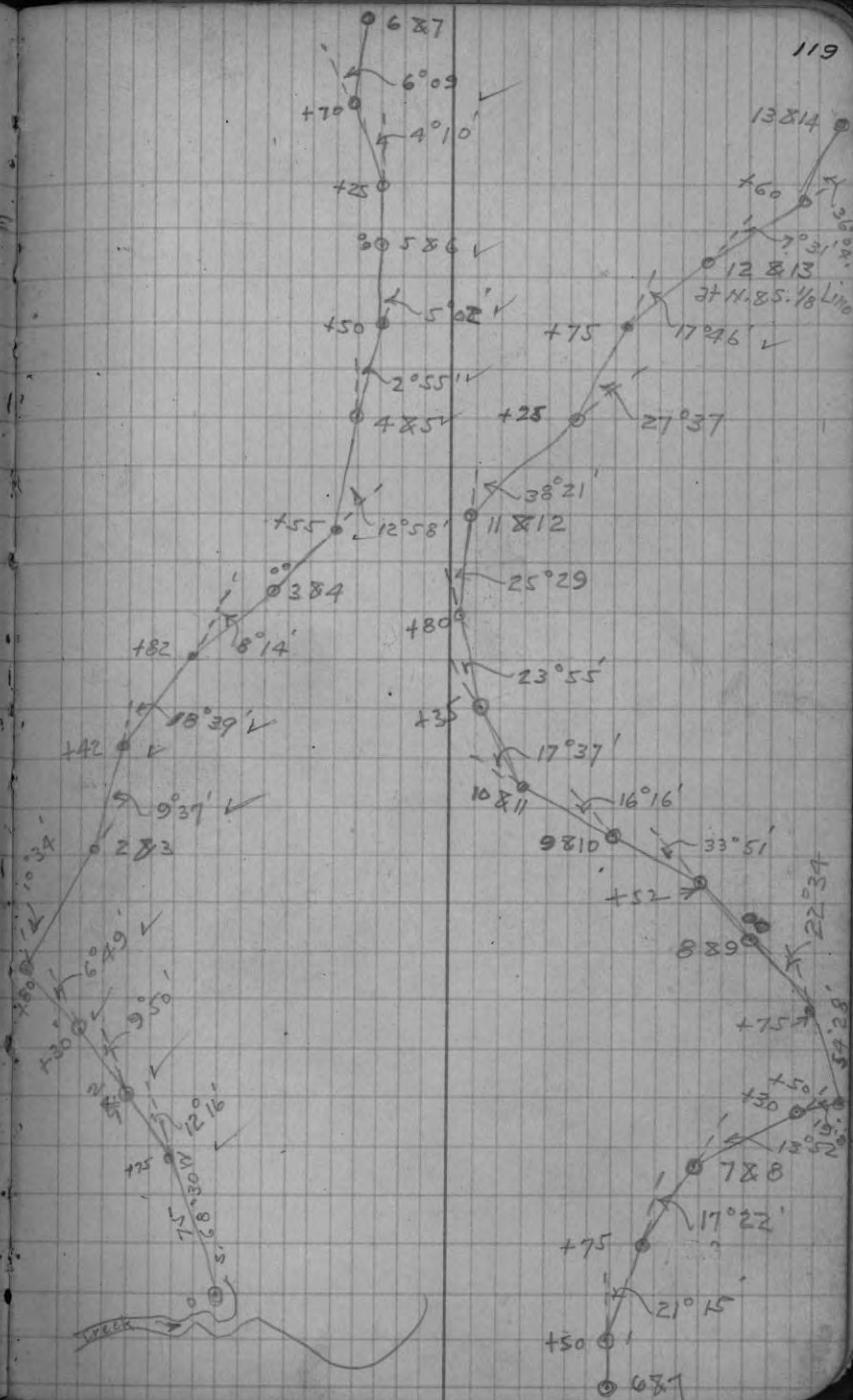 119
6 & 7
6°09
+70
4°10'
+25
5 & 6
+50
5°02'
2°55'
4 & 5
+55
12°58'
3 & 4
+82
8°14'
18°39'
+42
9°37'
2 & 3
10°34'
+80
6°49'
+30
9°50'
12°16'
+75
75
S. 68°30 W
0
Creek
13 & 14
+60
7°31'
12 & 13
at N. & S. 1/8 Line
+75
17°46'
+25
27°37
38°21'
11 & 12
25°29
+80
23°55'
+35
17°37'
10 & 11
16°16'
9 & 10
33°51'
+52
22°34
8 & 9
+75
54°28'
+50
+30
7 & 8
17°22'
+75
21°15'
+50
6 & 7